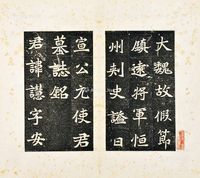 大魏故假節
鎮遠將軍恒
州刺史諡曰
宣公元使君
墓誌銘
君諱譿字安